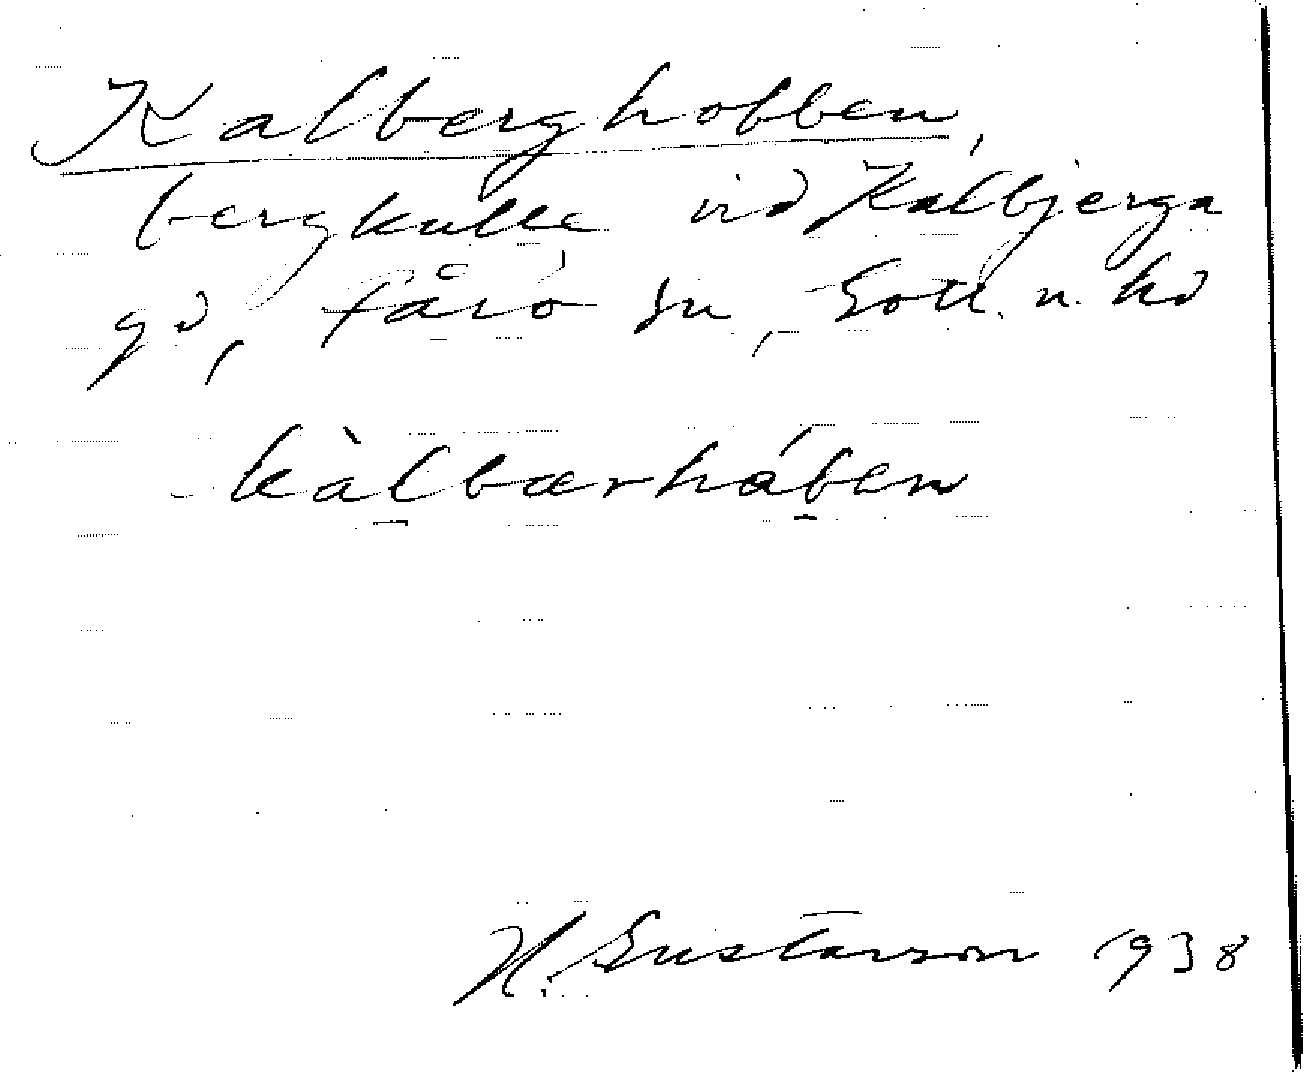 Kalberghobben,
bergkulle vid Kalbjerga
gd, Fårö sn, Gotl. n. hd
kàlbærhåben
H. Gustavson 1938